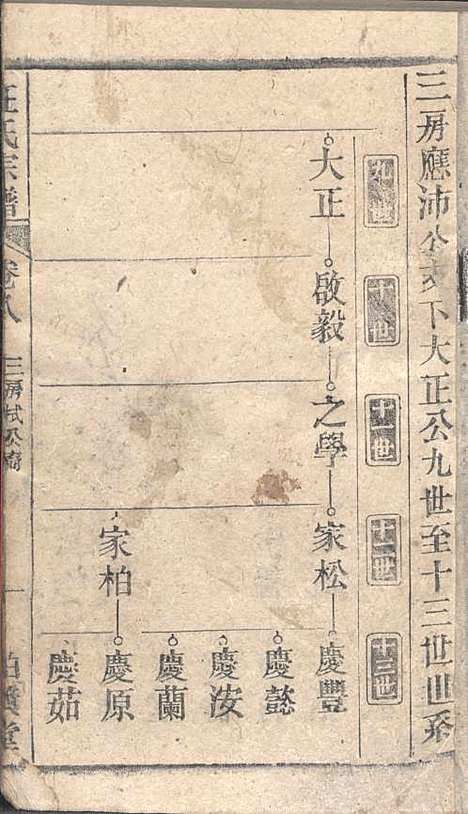 三房應沛公支下大正公九世至十三世世系
九世
十世
十一世
十二世
十三世
大正
啟毅
之學
家松
慶豐
慶懿
慶汝
慶蘭
家柏
慶原
慶茹
汪氏宗譜
卷八
三房
一